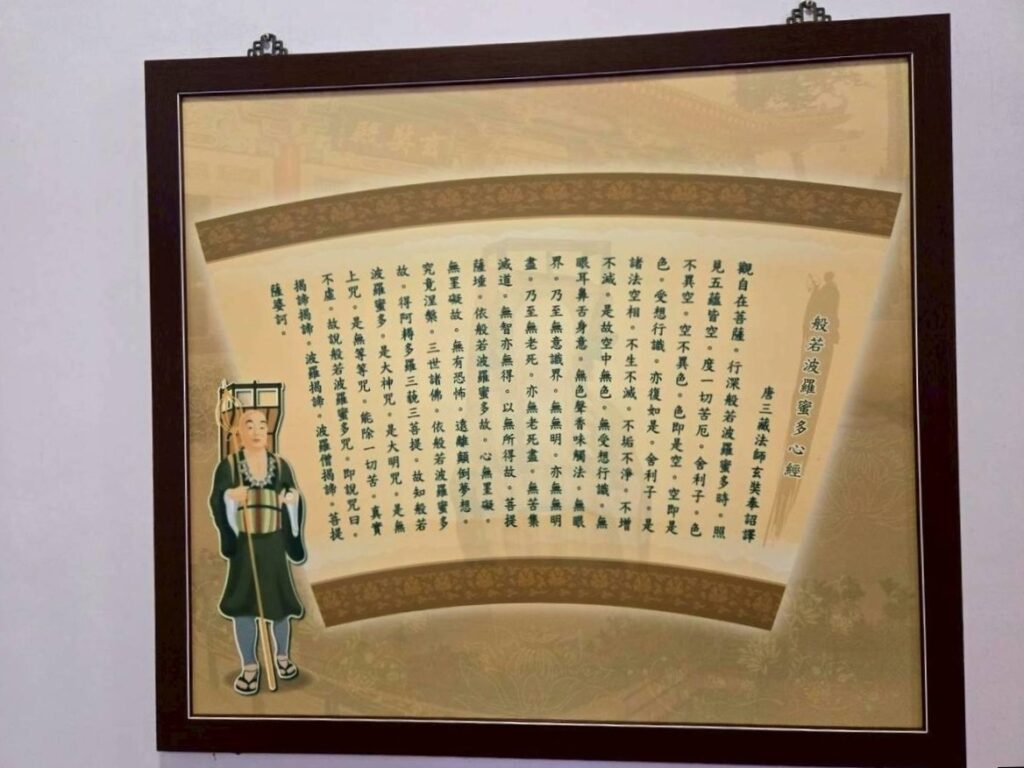 般若波羅蜜多心經
唐三藏法師玄奘奉詔譯
觀自在菩薩。行深般若波羅蜜多時。照
見五蘊皆空。度一切苦厄。舍利子。色
不異空。空不異色。色即是空。空即是
色。受想行識。亦復如是。舍利子。是
諸法空相。不生不滅。不垢不淨。不增
不減。是故空中無色。無受想行識。無
眼耳鼻舌身意。無色聲香味觸法。無眼
界。乃至無意識界。無無明。亦無無明
盡。乃至無老死。亦無老死盡。無苦集
滅道。無智亦無得。以無所得故。菩提
薩埵。依般若波羅蜜多故。心無罣礙。
無罣礙故。無有恐怖。遠離顛倒夢想。
究竟涅槃。三世諸佛。依般若波羅蜜多
故。得阿耨多羅三藐三菩提。故知般若
波羅蜜多。是大神咒。是大明咒。是無
上咒。是無等等咒。能除一切苦。真實
不虛。故說般若波羅蜜多咒。即說咒曰。
揭諦揭諦。波羅揭諦。波羅僧揭諦。菩提
薩婆訶。
玄奘殿